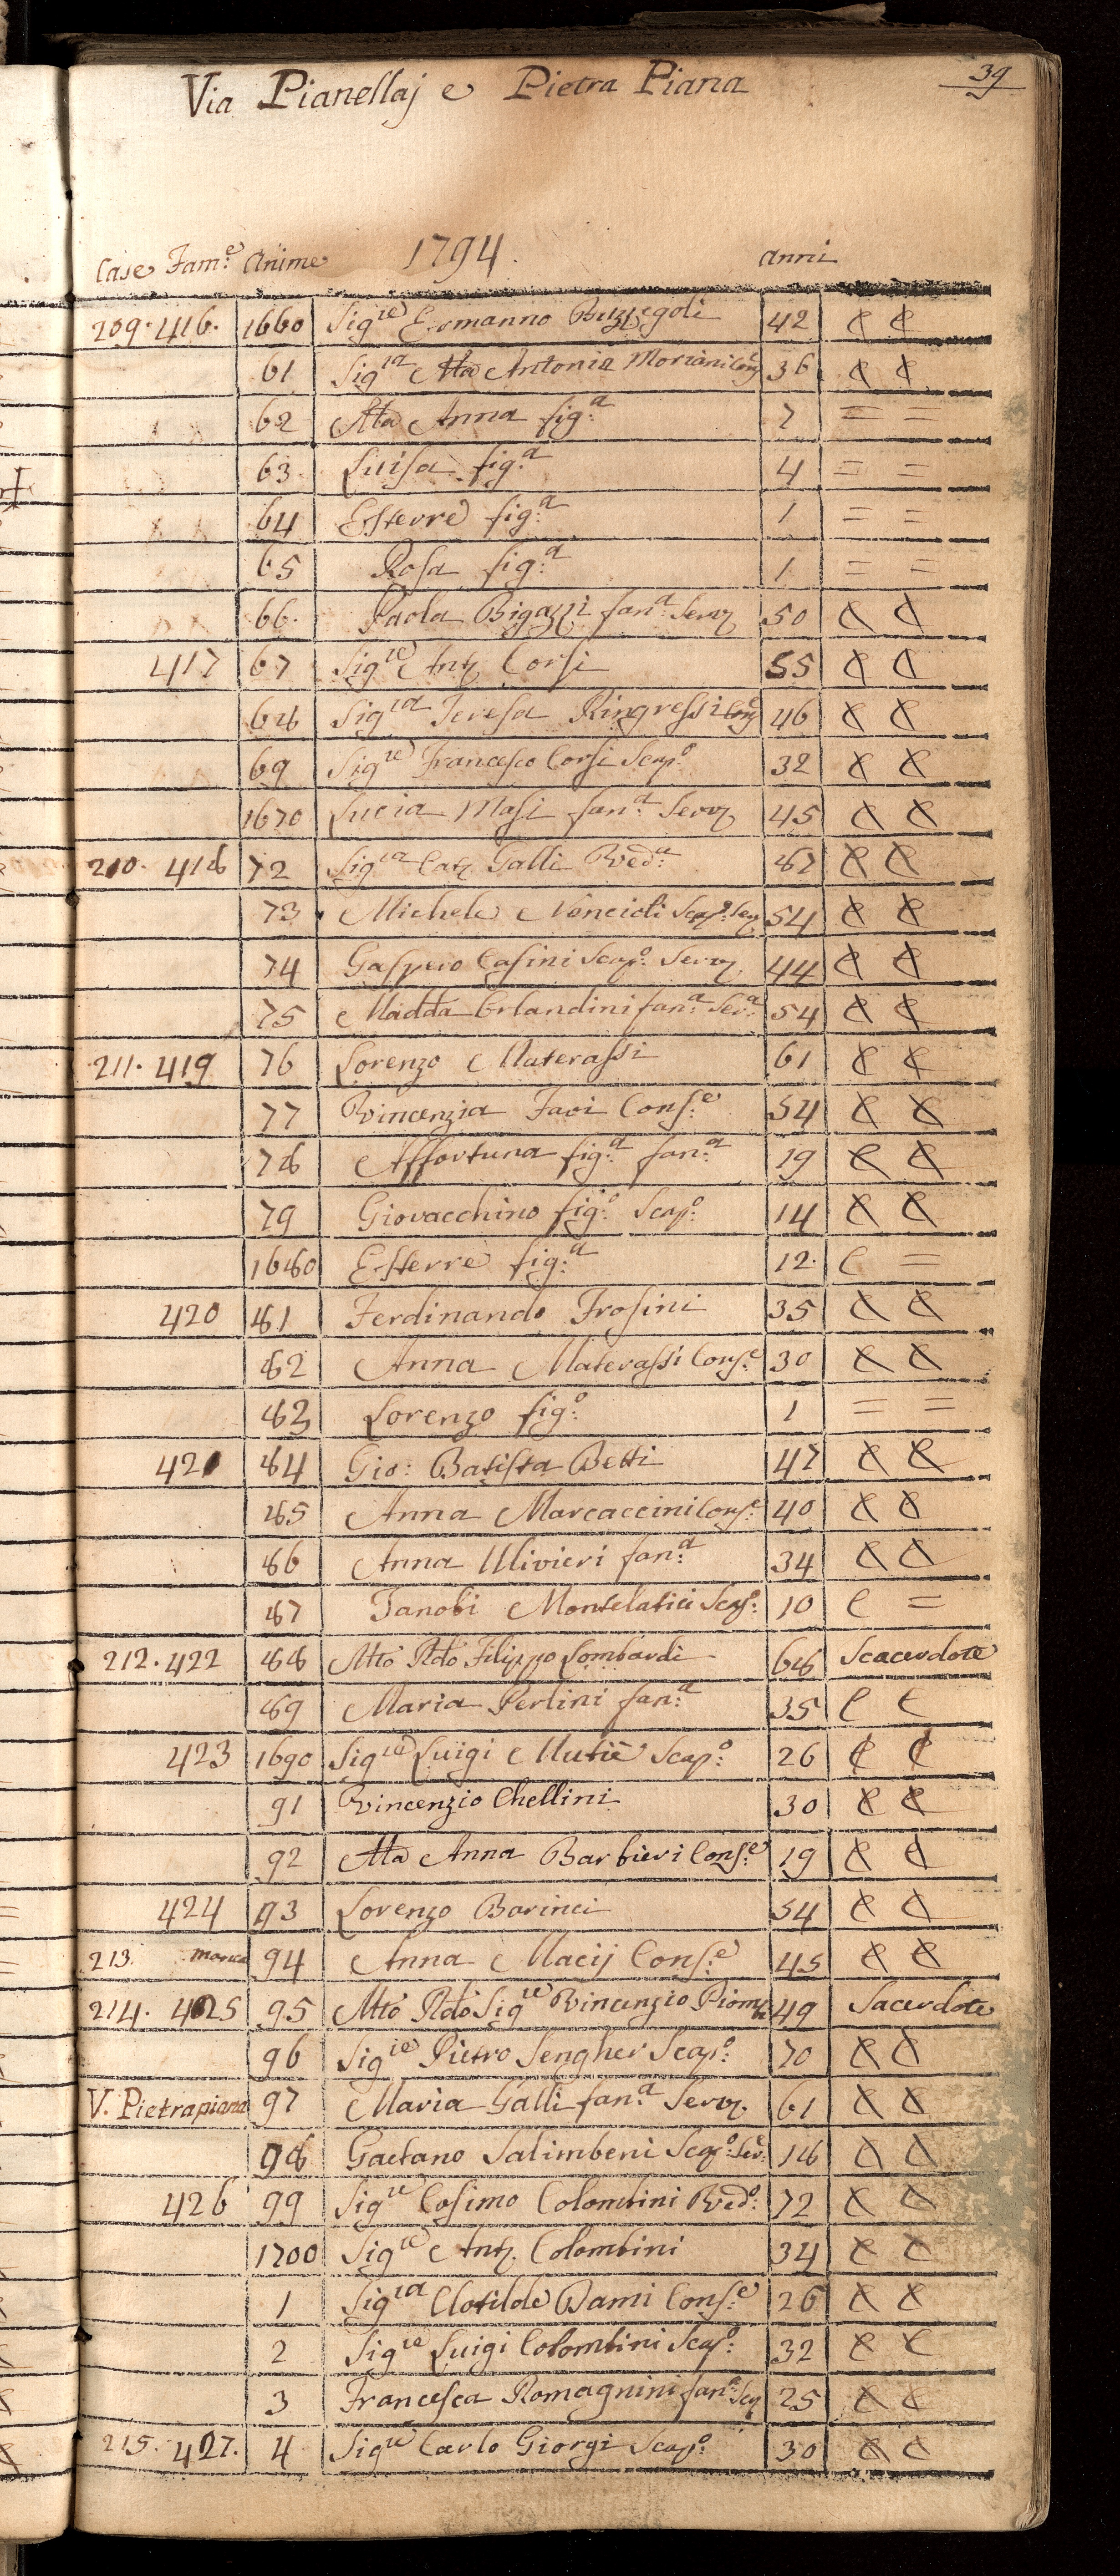 Via Pianellaj e Pietra Piana 39
Case Fam:e Anime 1794. anni
209. 416. 1660 Sig:re Ermanno Buzzegoli 42 C C
61 Sig:ra Ma Antonia Moriani Con: 36 C C
62 Ma Anna fig:a 7 = =
63 Luisa fig:a 4 = =
64 Esterre fig:a 1 = =
65 Rosa fig:a 1 = =
66. Paola Bigazzi fan:a Serv 50 C C
417 67 Sig:re Ant. Corsi 55 C C
68 Sig:ra Teresa Ringressi Con 46 C C
69 Sig:re Francesco Corsi Scap:o 32 C C
1670 Lucia Masi fan:a Serv 45 C C
210. 418 72 Sig:ra Cat. Galli Ved:a 67 C C
73 Michele Noncioli Scap:o Ser 54 C C
74 Gaspero Casini Scap:o Serv 44 C C
75 Madda Orlandini fan:a Ser:a 54 C C
211. 419 76 Lorenzo Materassi 61 C C
77 Vincenzia Favi Cons:e 54 C C
78 Affortuna fig:a fan:a 19 C C
79 Giovacchino fig:o Scap:o 14 C C
1680 Esterre fig:a 12. C =
420 81 Ferdinando Frosini 35 C C
82 Anna Materassi Cons:e 30 C C
83 Lorenzo fig:o 1 = =
421 84 Gio: Batista Betti 47 C C
85 Anna Marcaccini Cons:e 40 C C
86 Anna Ulivieri fan:a 34 C C
87 Zanobi Montelatici Scap:o 10 C =
212. 422 88 Mto Rdo Filippo Lombardi 68 Scacerdote
89 Maria Perlini fan:a 35 C C
423 1690 Sig:re Luigi Mutiè Scap:o 26 C C
91 Vincenzio Chellini 30 C C
92 Ma Anna Barbieri Cons:e 19 C C
424 93 Lorenzo Barinci 54 C C
213. manca 94 Anna Macij Cons:e 45 C C
214. 425 95 Mto Rdo Sig:re Vincenzio Piom 49 Sacerdote
96 Sig:re Pietro Sengher Scap:o 70 C C
V. Pietrapiana 97 Maria Galli fan:a Serv. 61 C C
98 Gaetano Salimbeni Scap:o Ser: 18 C C
426 99 Sig:re Cosimo Colombini Ved:o 72 C C
1700 Sig:re Ant. Colombini 34 C C
1 Sig:ra Clotilde Dami Cons:e 26 C C
2 Sig:re Luigi Colombini Scap:o 32 C C
3 Francesca Romagnini fan:a Ser 25 C C
215. 427. 4 Sig:re Carlo Giorgi Scap:o 30 C C